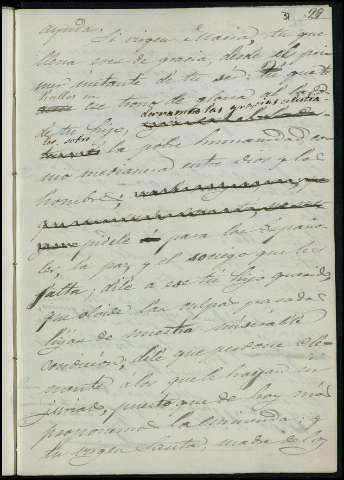 31 29
ayuda.
Si virgen Maria, tu que
llena eres de gracia, desde el pri
mer instante de tu ser: tú que te
hallas en
ese trono de gloria al lado
derramas las gracias celestia
de tu hijo,
les sobre
la pobre humanidad co
mo medianera entre dios y los
hombres,
pídele para los españo
les, la paz y el sosiego que les
falta; dile a ese tu hijo querido,
que olvide las culpas pasadas
hijas de nuestra miserable
condicion, dile que perdone cle-
mente á los que le hayan in
juriado, puesto que de hoy mas
proponemos la enmienda: y
tu virgen Santa, madre de los